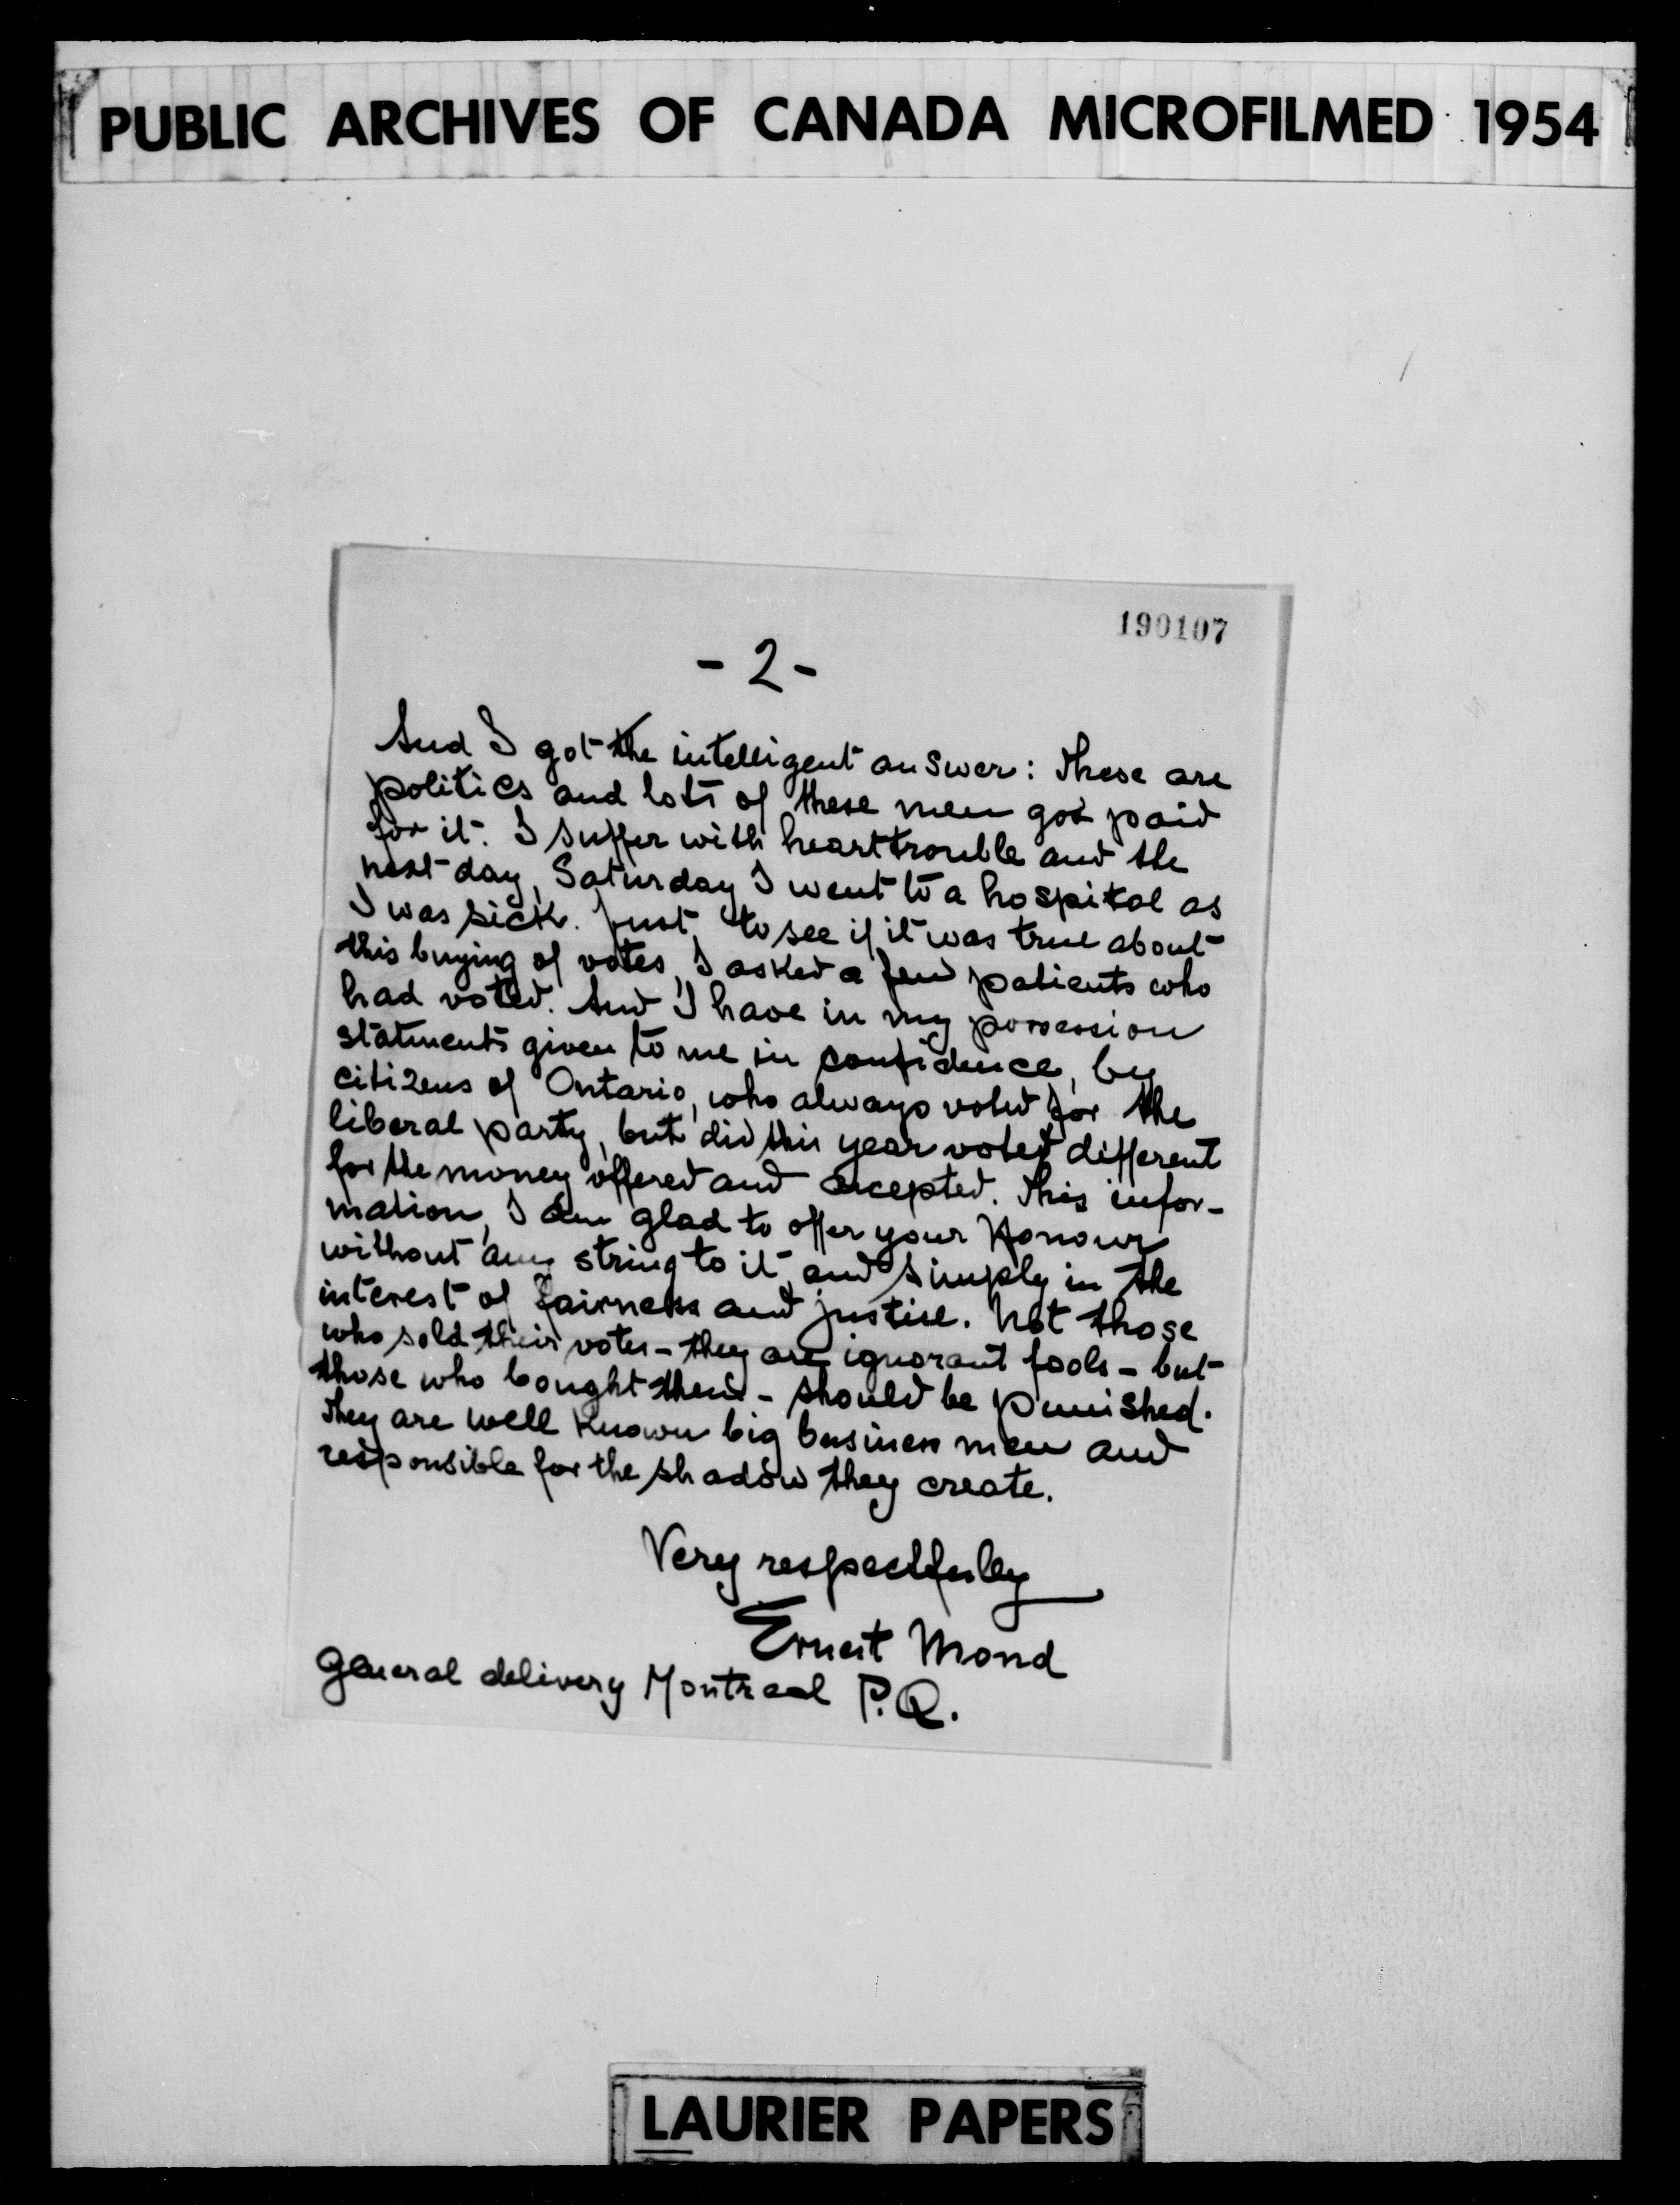 PUBLIC ARCHIVES OF CANADA MICROFILMED 1954
190107
- 2 -
And I got the intelligent answer: These are
politics and lots of these men got paid
for it. I suffer with hearttrouble and the
next day, Saturday I went to a hospital as
I was sick. Just to see if it was true about
this buying of votes, I asked a few patients who
had voted. And I have in my possession
statments given to me in confidence, by
citizens of Ontario, who always voted for the
liberal party, but did this year voted different
for the money offered and accepted. This infor-
mation, I am glad to offer your Honour
without any string to it and simply in the
interest of fairness and justice. Not those
who sold their votes - they are ignorant fools - but
those who bought them - should be punished.
They are well known big business men and
responsible for the shadow they create.
Very respectfully
Ernest Mond
General delivery Montreal P.Q.
LAURIER PAPERS